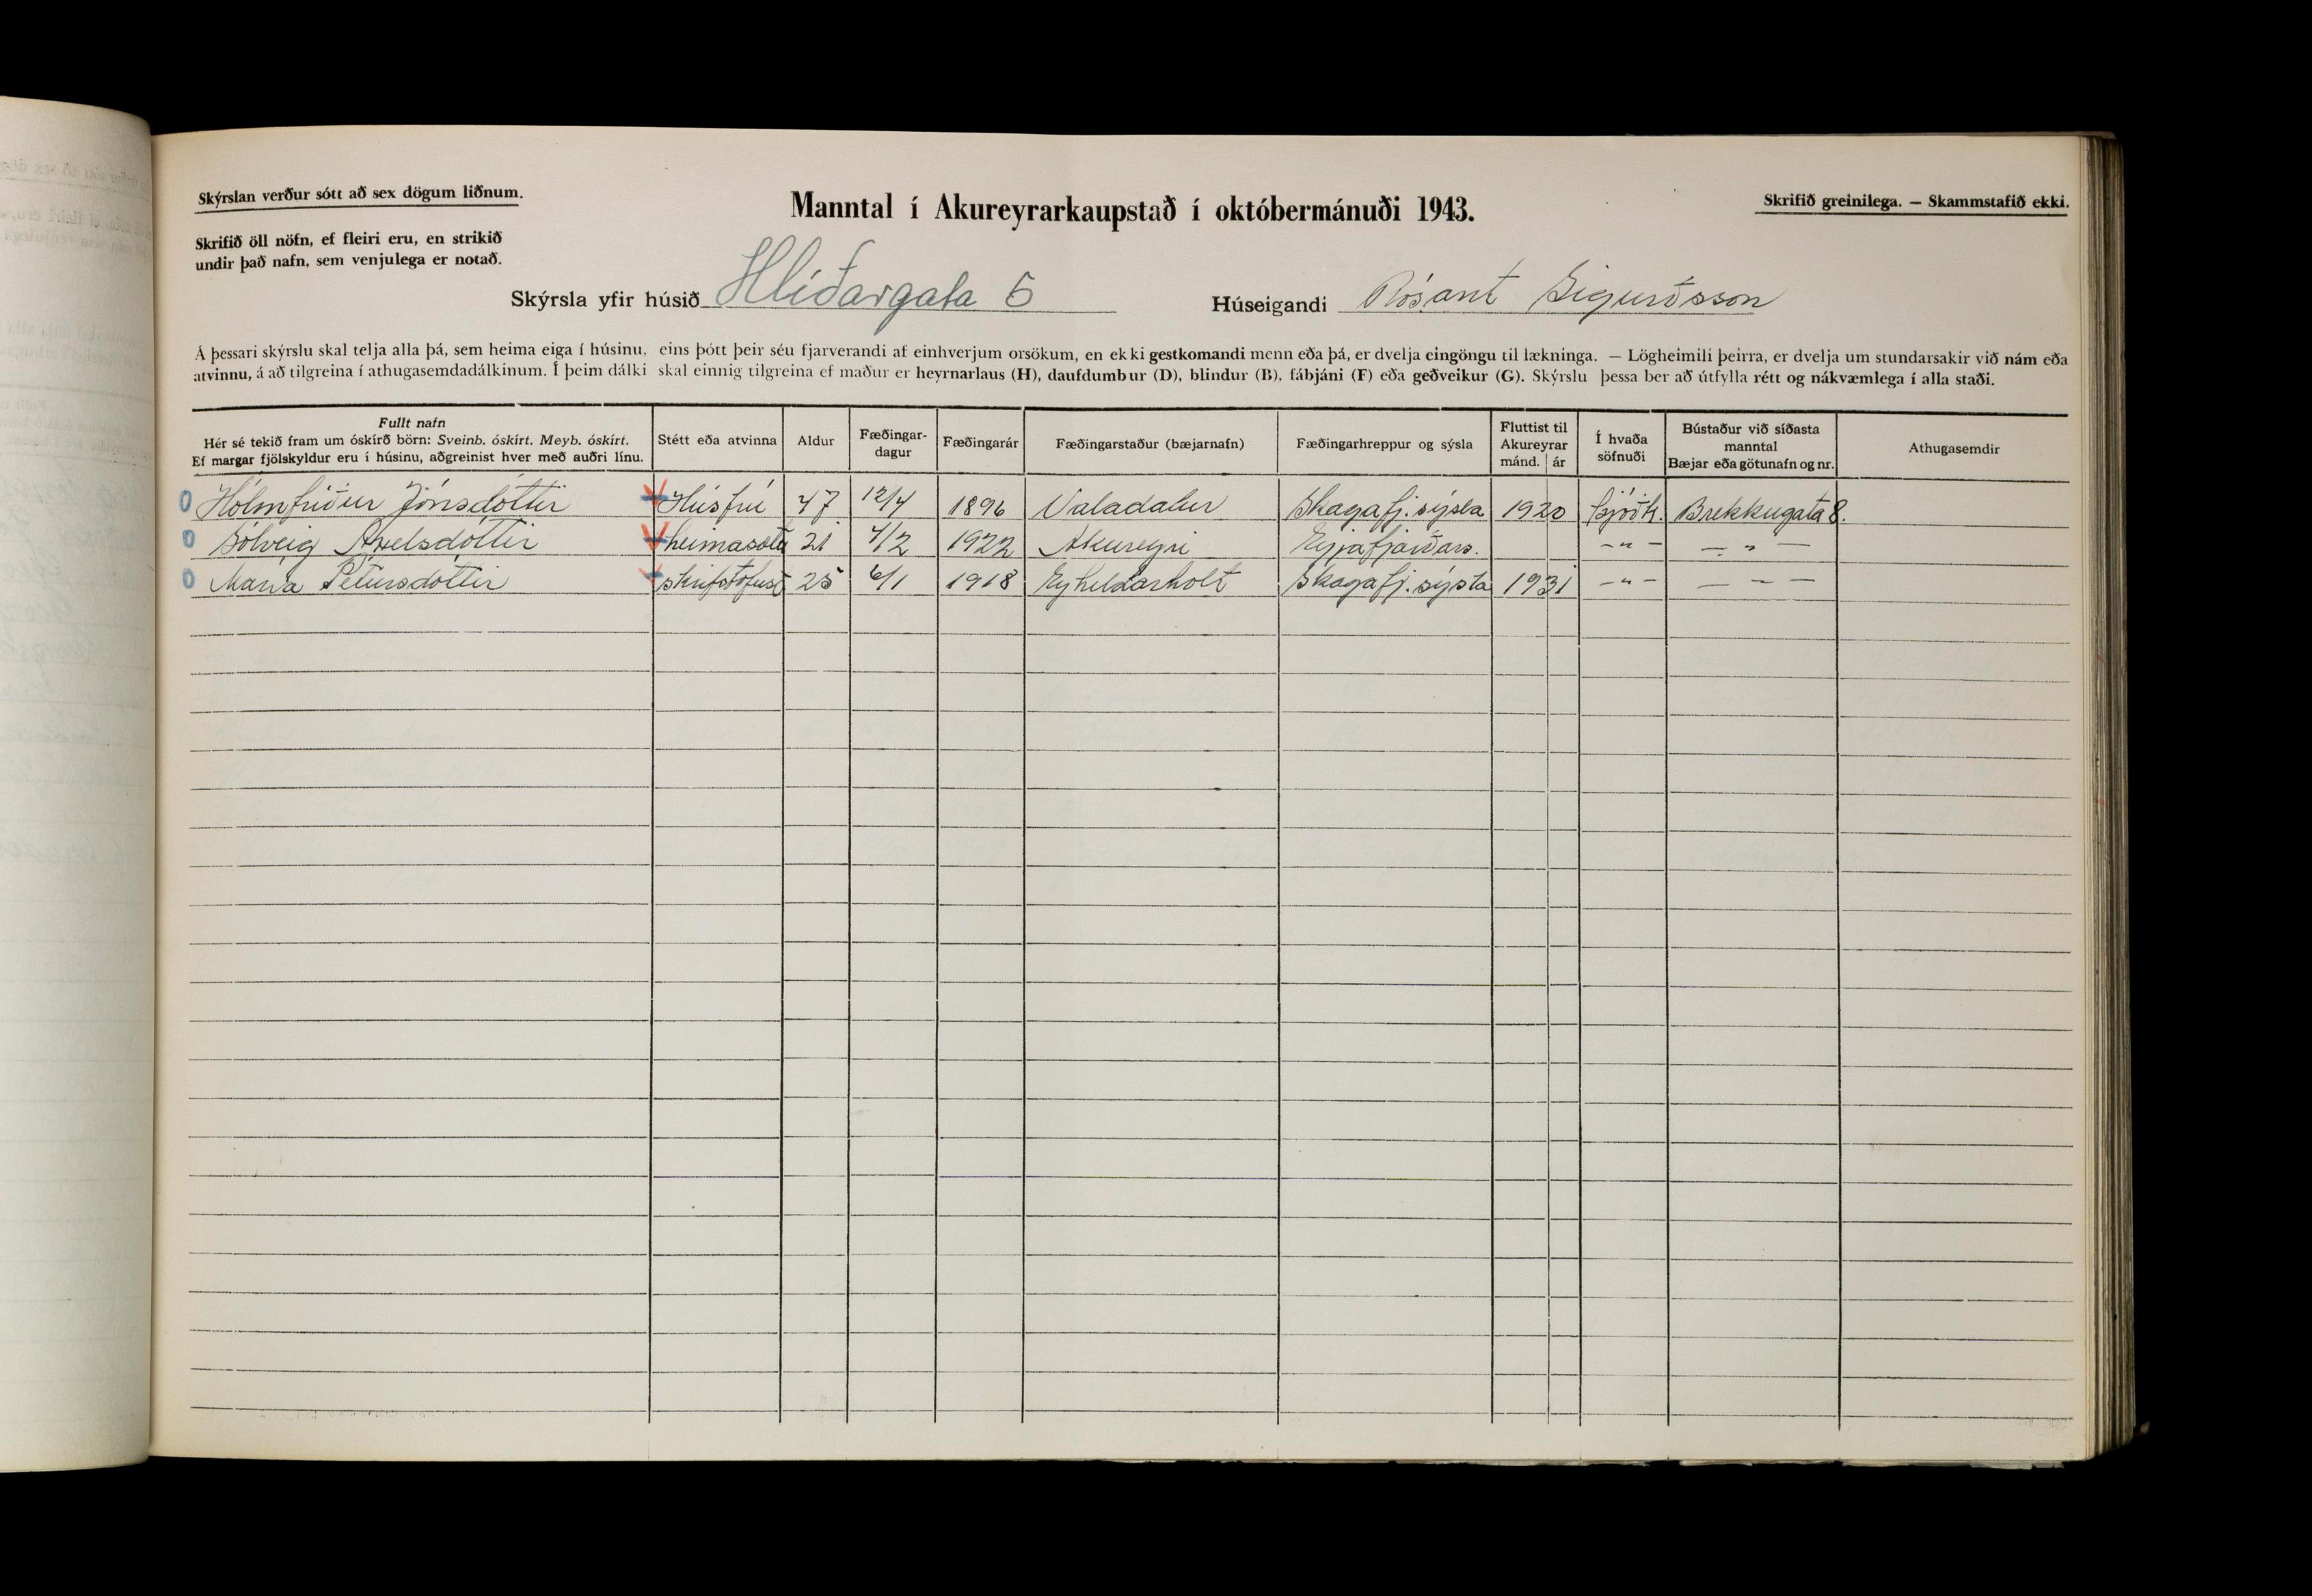 Skýrslan verður sótt að sex dögum liðnum.
Manntal í Akureyrarkaupstað í októbermánuði 1943.
Skrifið greinilega. — Skammstafið ekki.
Skrifið öll nöfn, ef fleiri eru, en strikið
undir það nafn, sem venjulega er notað.
Skýrsla yfir húsið Hlíðargata 5 Húseigandi Rósant Sigurðsson
Á þessari skýrslu skal telja alla þá, sem heima eiga í húsinu, eins þótt þeir séu fjarverandi af einhverjum orsökum, en ekki gestkomandi menn eða þá, er dvelja eingöngu til lækninga. — Lögheimili þeirra, er dvelja um stundarsakir við nám eða
atvinnu, á að tilgreina í athugasemdadálkinum. Í þeim dálki skal einnig tilgreina ef maður er heyrnarlaus (H), daufdumbur (D), blindur (B), fábjáni (F) eða geðveikur (G). Skýrslu þessa ber að útfylla rétt og nákvæmlega í alla staði.
Fullt nafn
Hér sé tekið fram um óskírð börn: Sveinb. óskírt. Meyb. óskírt.
Ef margar fjölskyldur eru í húsinu, aðgreinist hver með auðri línu.
Stétt eða atvinna
Aldur
Fæðingar-
dagur
Fæðingarár
Fæðingarstaður (bæjarnafn)
Fæðingarhreppur og sýsla
Fluttist til
Akureyrar
mánd. ár
Í hvaða
söfnuði
Bústaður við síðasta
manntal
Bæjar eða götunafn og nr.
Athugasemdir
0 Hólmfríður Jónsdóttir Húsfrú 47 12/4 1896 Valadalur Skagafj.sýsla 1920 þjóðk. Brekkugata 8.
0 Sólveig Axelsdóttir heimasæta 21 4/2 1922 Akureyri Eyjafjarðars. — " — — " —
0 María Pétursdóttir skrifstofust 25 6/1 1918 Eyhildarholt Skagafj.sýsla 1931 — " — — " —